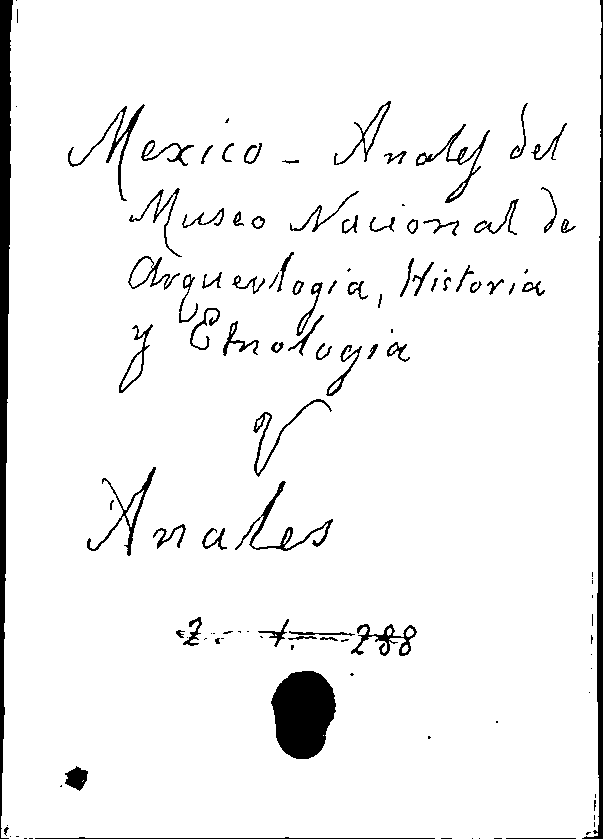 Mexico - Anales del
Museo Nacional de
Arqueologia, Historia
y Etnologia
V
Anales
Z. 1. 288